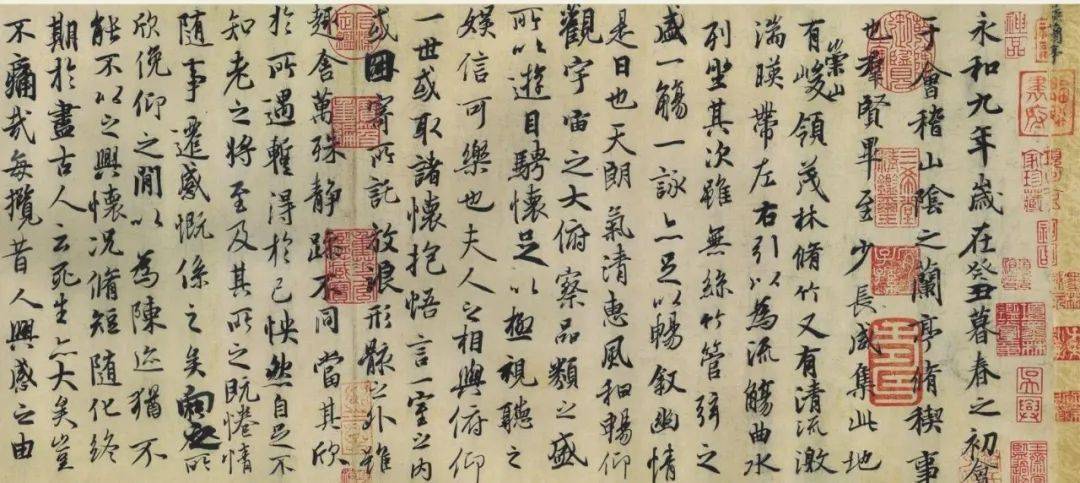 永和九年歲在癸丑暮春之初會
于會稽山陰之蘭亭脩禊事
也羣賢畢至少長咸集此地
有崇山峻領茂林脩竹又有清流激
湍暎帶左右引以為流觴曲水
列坐其次雖無絲竹管弦之
盛一觴一詠亦足以暢叙幽情
是日也天朗氣清惠風和暢仰
觀宇宙之大俯察品類之盛
所以遊目騁懷足以極視聽之
娛信可樂也夫人之相與俯仰
一世或取諸懷抱悟言一室之內
或因寄所託放浪形骸之外雖
趣舍萬殊靜躁不同當其欣
於所遇暫得於己怏然自足不
知老之將至及其所之既惓情
隨事遷感慨係之矣向之所
欣俛仰之閒以為陳迹猶不
能不以之興懷況脩短隨化終
期於盡古人云死生亦大矣豈
不痛哉每攬昔人興感之由